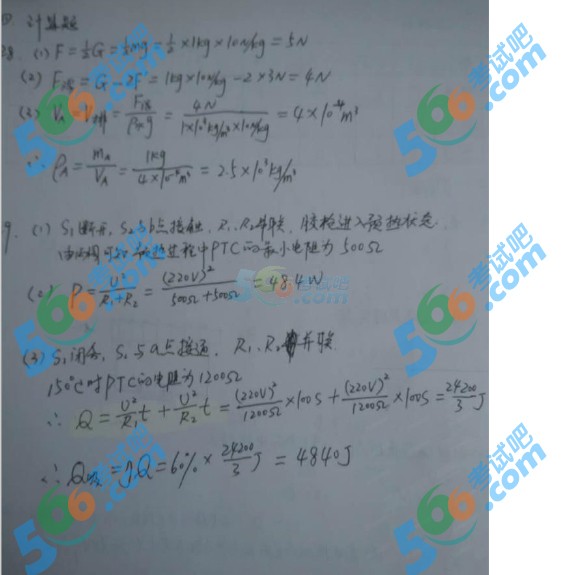 四 计算题
28. (1) F=½G=½mg=½×1kg×10N/kg=5N
(2) F浮=G-2F'=1kg×10N/kg-2×3N=4N
(3) V_A=V排=F浮/ρ水g=4N/1×10³kg/m³×10N/kg=4×10⁻⁴m³
∴ ρ_A=m_A/V_A=1kg/4×10⁻⁴m³=2.5×10³kg/m³
9. (1) S₁断开, S₂与b点接触, R₁、R₂串联, 胶枪进入预热状态
由图可知 预热过程中PTC的最小电阻为500Ω
(2) P=U²/R₁+R₂=(220V)²/500Ω+500Ω=48.4W
(3) S₁闭合, S₂与a点接通, R₁、R₂并联
150℃时PTC的电阻为1200Ω
∴ Q=U²/R₁t+U²/R₂t=(220V)²/1200Ω×100S+(220V)²/1200Ω×100S=24200/3J
∴ Q吸=ηQ=60%×24200/3J=4840J
566考试吧
566考试吧
566考试吧
566考试吧
566考试吧